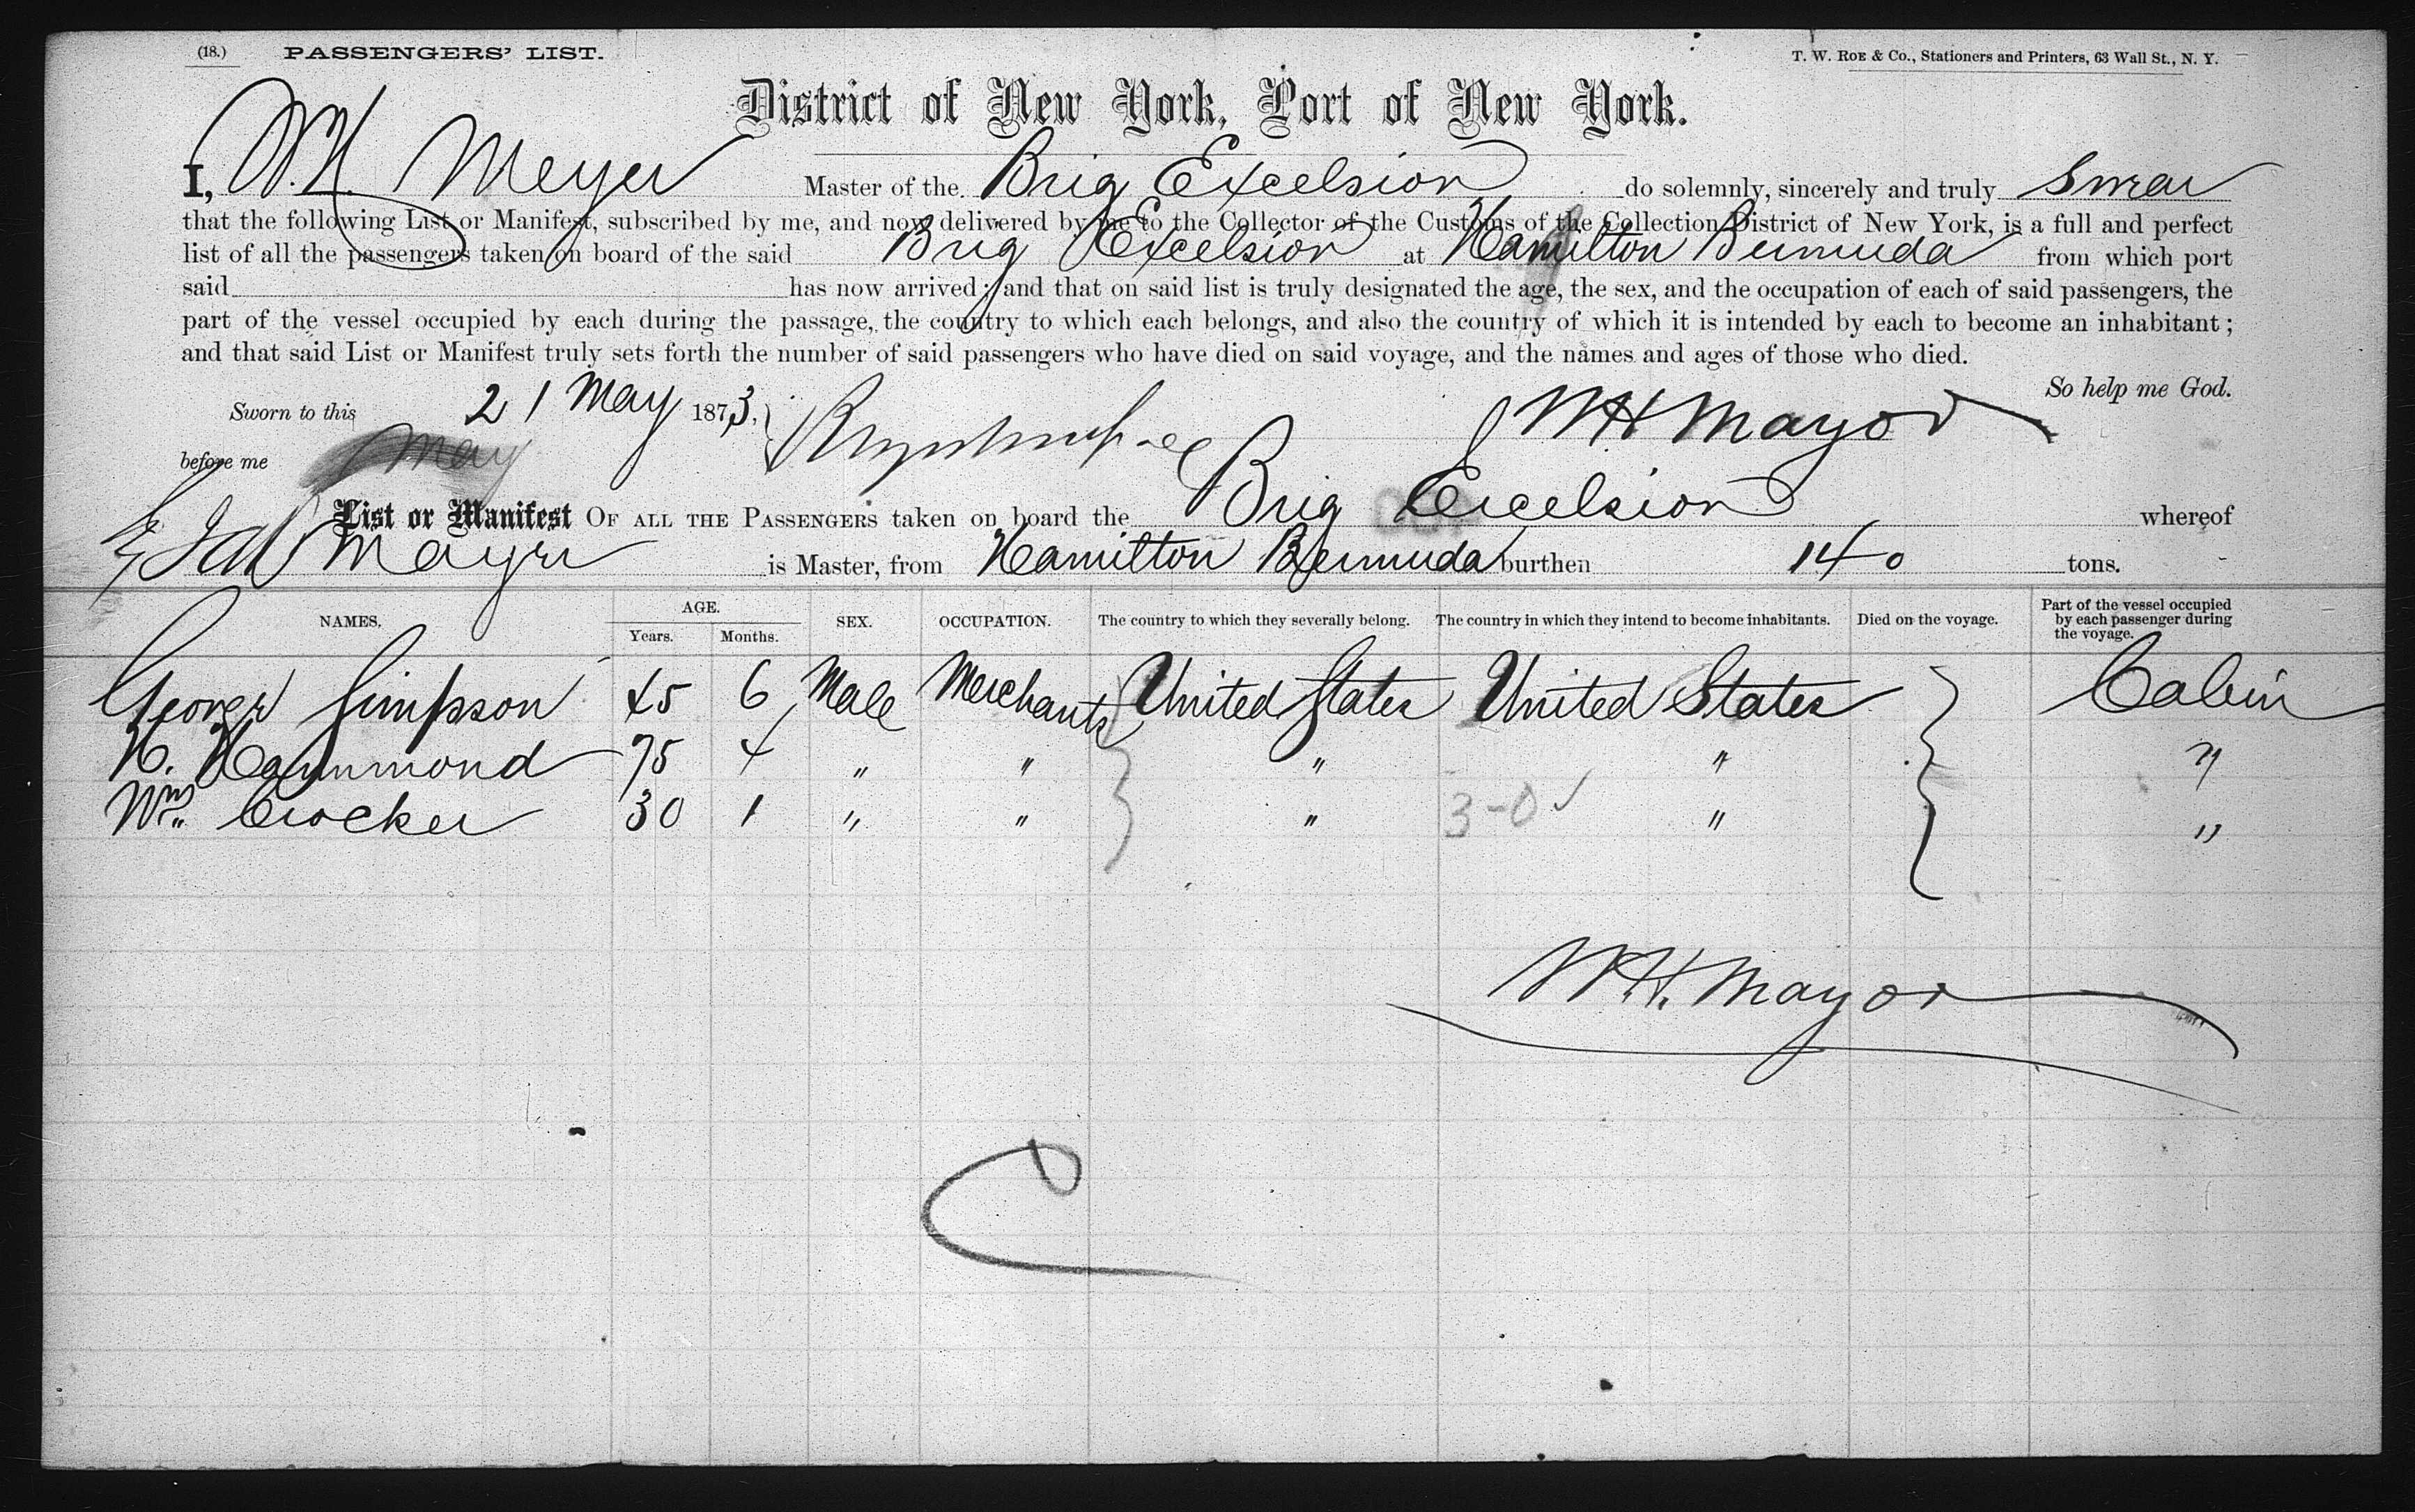 (18.) PASSENGERS' LIST. T. W. ROE & Co., Stationers and Printers, 63 Wall St., N. Y.
District of New York, Port of New York.
I, W. H. Meyer Master of the Brig Excelsior do solemnly, sincerely and truly Swear
that the following List or Manifest, subscribed by me, and now delivered by me to the Collector of the Customs of the Collection District of New York, is a full and perfect
list of all the passengers taken on board of the said Brig Excelsior at Hamilton Bermuda from which port
said has now arrived; and that on said list is truly designated the age, the sex, and the occupation of each of said passengers, the
part of the vessel occupied by each during the passage, the country to which each belongs, and also the country of which it is intended by each to become an inhabitant;
and that said List or Manifest truly sets forth the number of said passengers who have died on said voyage, and the names and ages of those who died.
So help me God.
Sworn to this 21 May 1873. W H Mayor
before me May
List or Manifest OF ALL THE PASSENGERS taken on board the Brig Excelsior whereof
Mayer is Master, from Hamilton Bermuda burthen 140 tons.
NAMES. AGE. Years. Months. SEX. OCCUPATION. The country to which they severally belong. The country in which they intend to become inhabitants. Died on the voyage. Part of the vessel occupied by each passenger during the voyage.
George Simpson 45 6 Male Merchants United States United States Cabin
H. Hammond 75 4 " " " " "
Wm. Crocker 30 1 " " " " "
3-0 ✓
W. H. Mayor